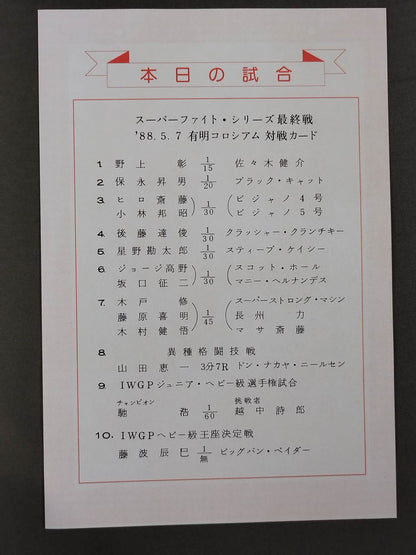 本日の試合
スーパーファイト・シリーズ最終戦
'88.5.7 有明コロシアム 対戦カード
1. 野上 彰 1/15 佐々木健介
2. 保永昇男 1/20 ブラック・キャット
3. ヒロ斎藤 ビジャノ4号
小林邦昭 1/30 ビジャノ5号
4. 後藤達俊 1/30 クラッシャー・クランチキー
5. 星野勘太郎 1/30 スティーブ・ケイシー
6. ジョージ高野 スコット・ホール
坂口征二 1/30 マニー・ヘルナンデス
7. 木戸 修 スーパーストロング・マシン
藤原喜明 1/45 長州 力
木村健悟 マサ斎藤
8. 異種格闘技戦
山田恵一 3分7R ドン・ナカヤ・ニールセン
9. IWGPジュニア・ヘビー級選手権試合
チャンピオン 挑戦者
馳 浩 1/60 越中詩郎
10. IWGPヘビー級王座決定戦
藤波辰巳 1/無 ビッグバン・ベイダー